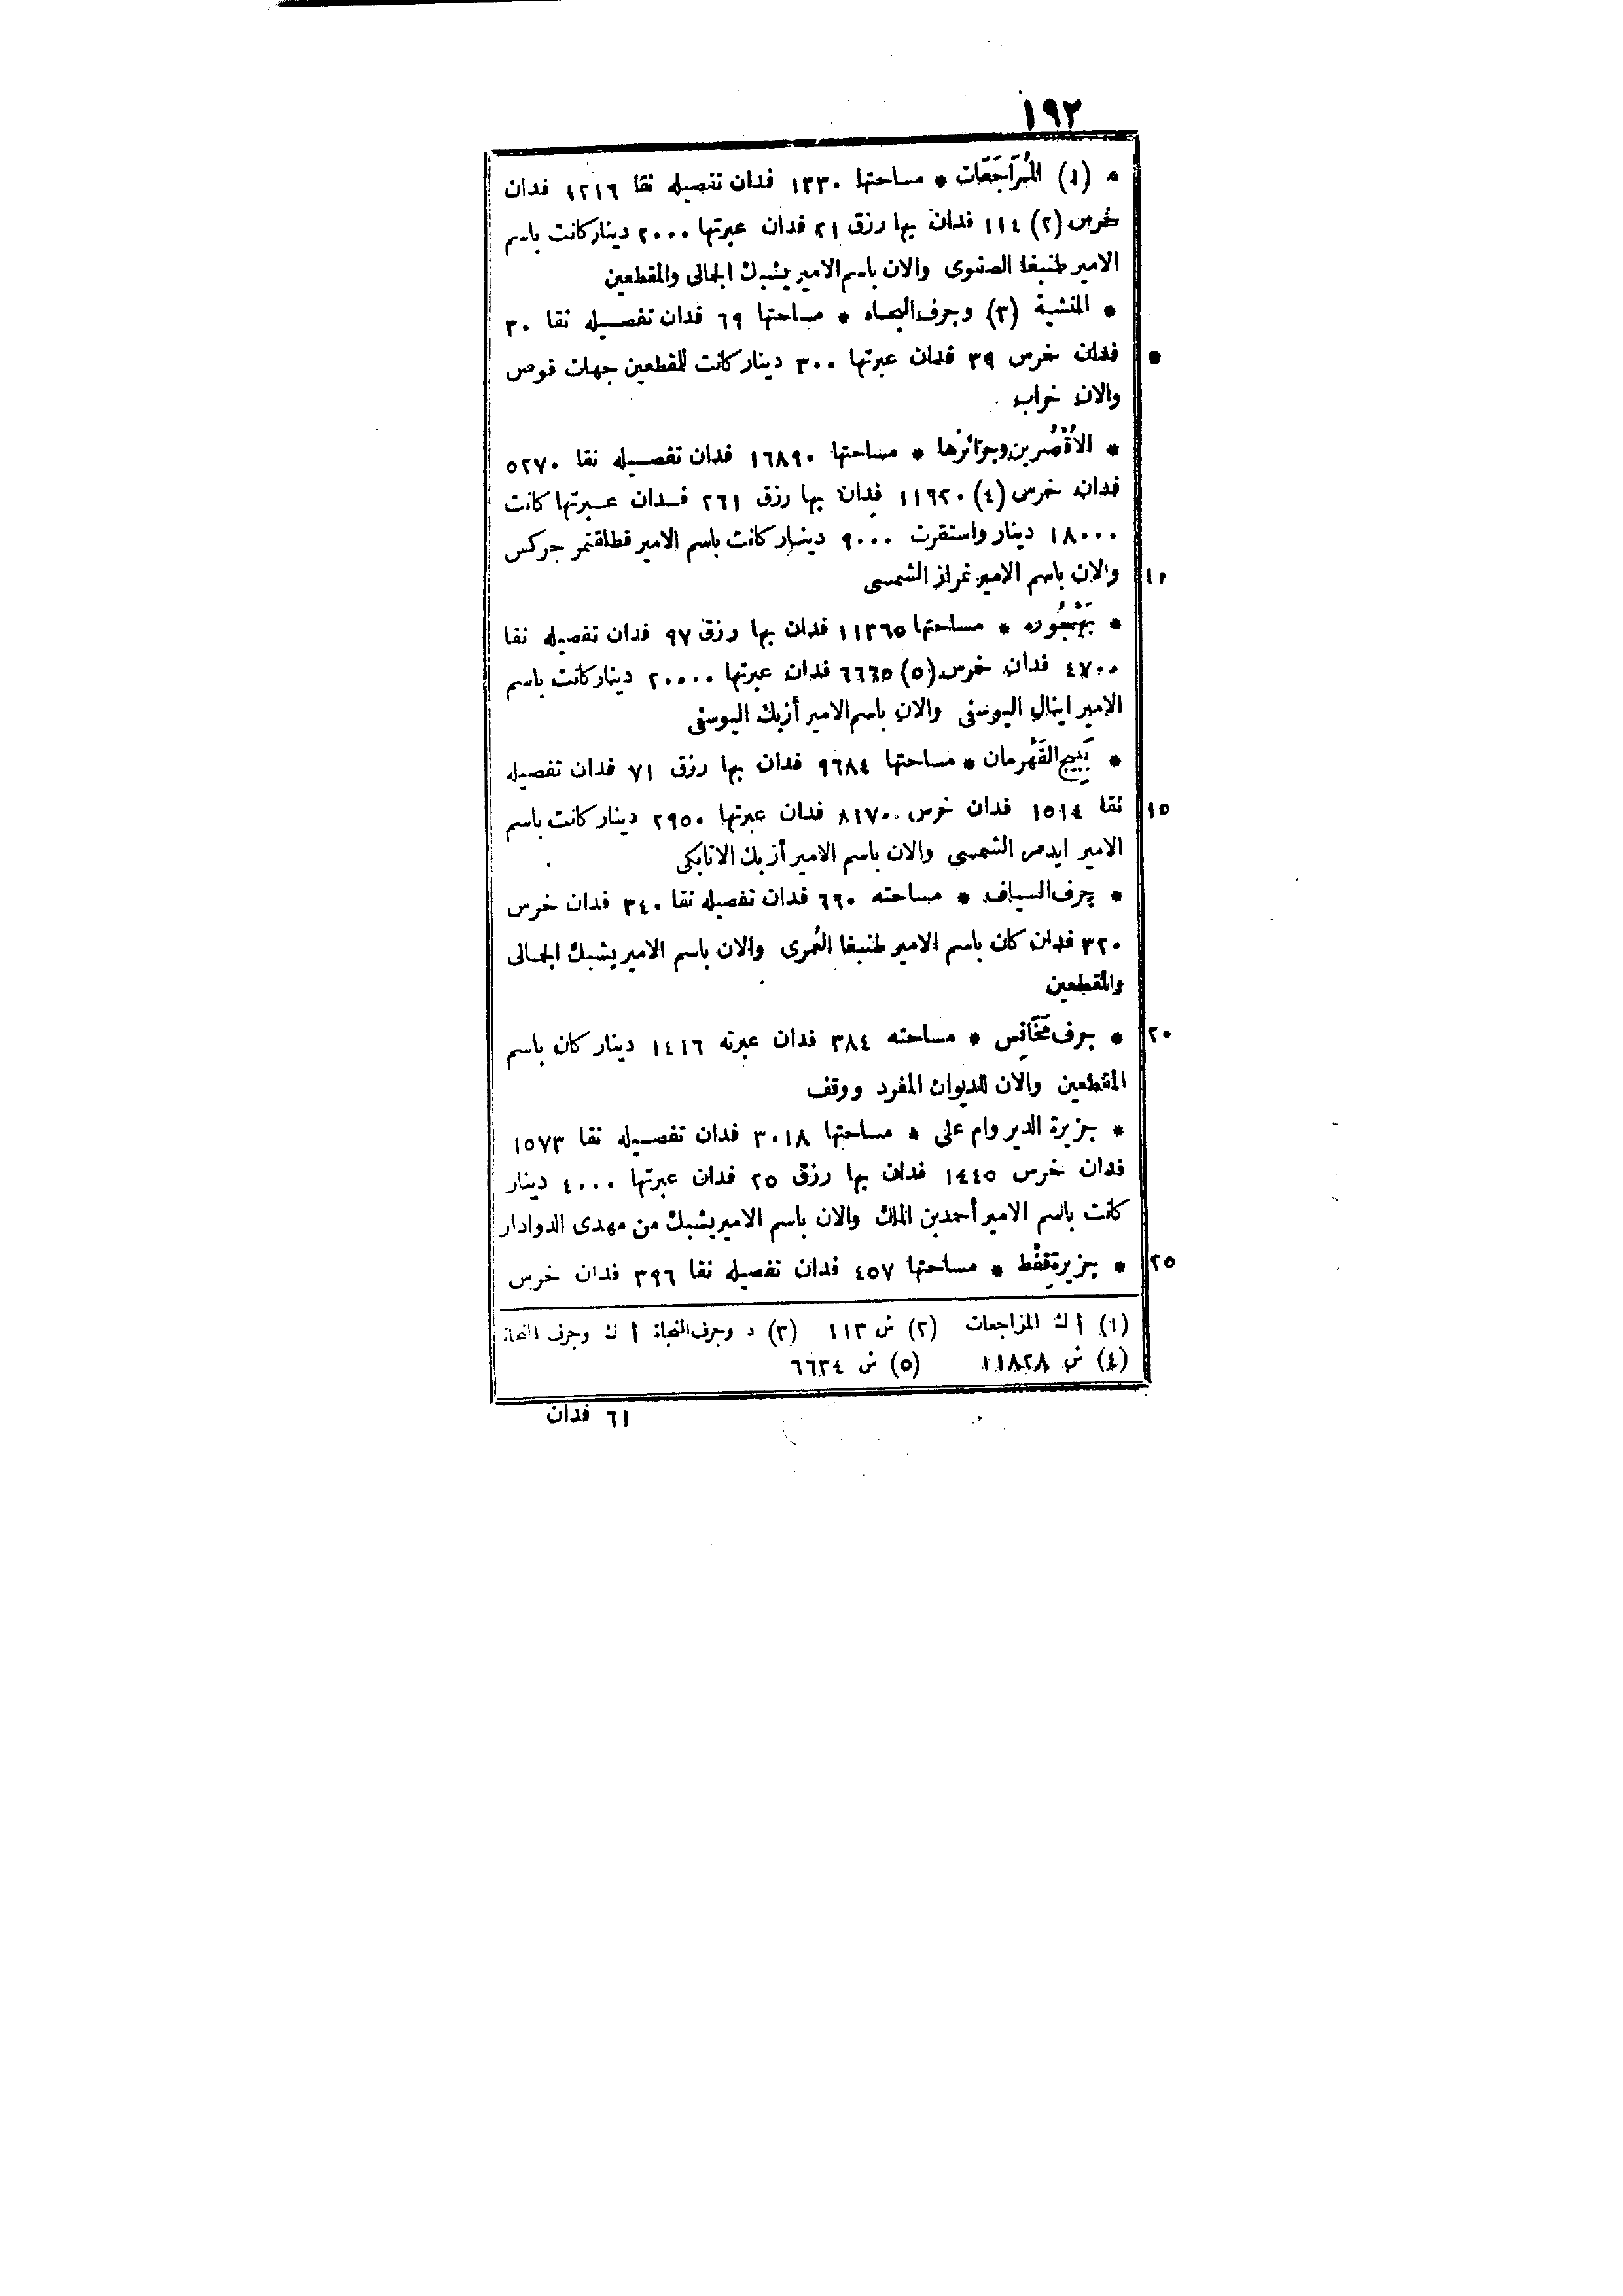 ١٩٢
* (١) المُرَاجَعَات * مساحتها ١٣٣٠ فدان تفصيله نقا ١٢١٦ فدان
خرس (٢) ١١٤ فدان بها رزق ٢١ فدان عبرتها ٢٠٠٠ دينار كانت باسم
الامير طنبغا الصفوى والان باسم الامير يشبك الجمالى والمقطعين
* المنشية (٣) وجرف * مساحتها ٦٩ فدان تفصيله نقا ٣٠
٥ فدان خرس ٣٩ فدان عبرتها ٣٠٠ دينار كانت للمقطعين جهات قوص
والان خراب
* الأُقْصُرين وجزائرها * مساحتها ١٦٨٩٠ فدان تفصيله نقا ٥٢٧٠
فدان خرس (٤) ١١٦٢٠ فدان بها رزق ٢٦١ فدان عبرتها كانت
١٨٠٠٠ دينار واستقرت ٩٠٠٠ دينار كانت باسم الامير قطلقتمر جركس
١٠ والان باسم الامير تمراز الشمسى
* بَهْجُوره * مساحتها ١١٣٦٥ فدان بها رزق ٩٧ فدان تفصيله نقا
٤٧٠٠ فدان خرس (٥) ٦٦٦٥ فدان عبرتها ٢٠٠٠٠ دينار كانت باسم
الامير اينال اليوسفى والان باسم الامير أزبك اليوسفى
* بَبِيج القَهْرمان * مساحتها ٩٦٨٤ فدان بها رزق ٧١ فدان تفصيله
١٥ نقا ١٥١٤ فدان خرس ٨١٧٠ فدان عبرتها ٢٩٥٠ دينار كانت باسم
الامير ايدمر الشمسى والان باسم الامير أزبك الاتابكى
* جرف السياف * مساحته ٦٦٠ فدان تفصيله نقا ٣٤٠ فدان خرس
٣٢٠ فدان كان باسم الامير طنبغا العُمرى والان باسم الامير يشبك الجمالى
والمقطعين
٢٠ * جرف مَخَانِس * مساحته ٣٨٤ فدان عبرته ١٤١٦ دينار كان باسم
المقطعين والان للديوان المفرد ووقف
* جزيرة الدير وام على * مساحتها ٣٠١٨ فدان تفصيله نقا ١٥٧٣
فدان خرس ١٤٤٥ فدان بها رزق ٢٥ فدان عبرتها ٤٠٠٠ دينار
كانت باسم الامير أحمد بن الملك والان باسم الامير يشبك من مهدى الدوادار
٢٥ * جزيرة قِفْط * مساحتها ٤٥٧ فدان تفصيله نقا ٣٩٦ فدان خرس
(١) أ ك المزاجعات (٢) ش ١١٣ (٣) د وجرف النجاة أ ك وجرف
(٤) ش ١١٨٢٨ (٥) ش ٦٦٣٤
٦١ فدان